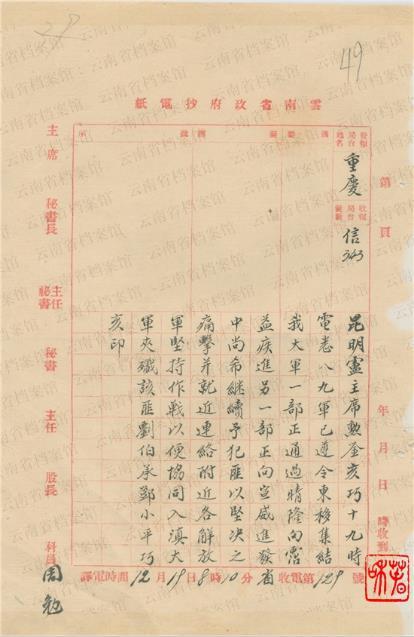 49
雲南省政府抄電紙
第 頁 年 月 日 時收到
重慶
信343
昆明盧主席勳鑒亥巧十九時
電悉八九軍已遵令東移集結
我大軍一部正通過晴隆向霑
益疾進另一部正向宣威進發
中尚希繼續予犯匪以堅決之
痛擊并就近連絡附近各解放
軍堅持作戰以便協同入滇大
軍夾殲該匪劉伯承鄧小平巧
亥印
譯電時間12月19日8時10分 省收電第129號
主席 秘書長 主任秘書 秘書 主任 股長 科員 周勉
云南省档案馆